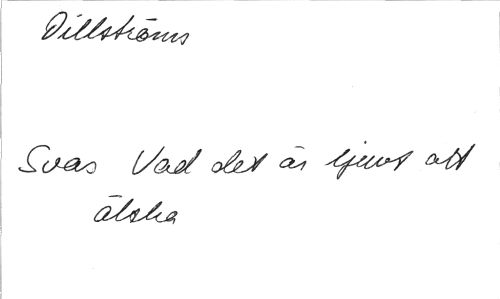 Dillströms
Svas Vad det är ljuvt att
älska